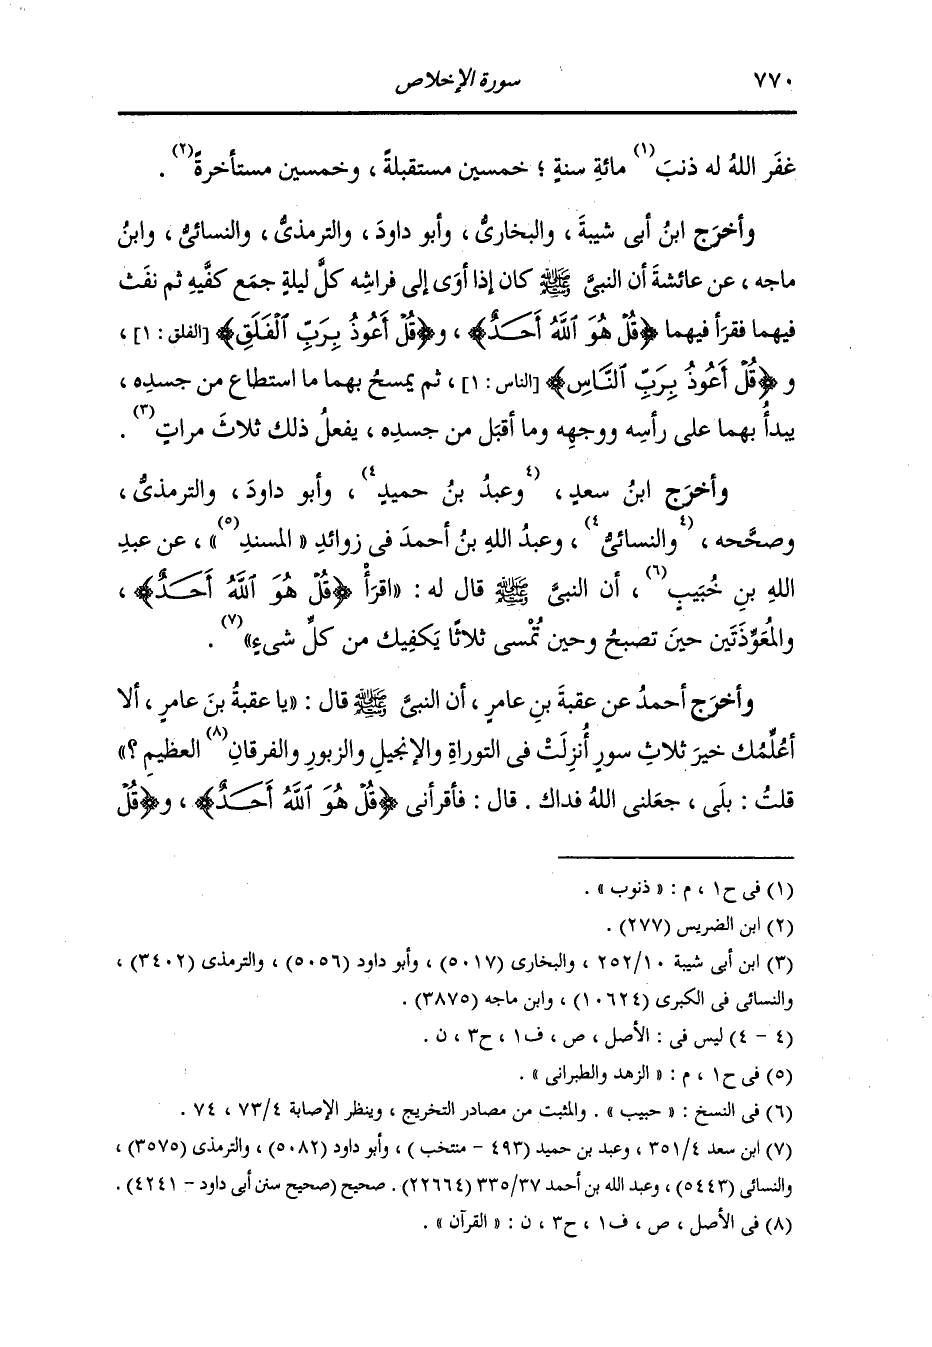 ٧٧٠ سورة الإخلاص
غفَر اللهُ له ذنبَ(١) مائةِ سنةٍ ؛ خمسين مستقبلةً ، وخمسين مستأخرةً(٢) .
وأخرَج ابنُ أبى شيبةَ ، والبخارىُّ ، وأبو داودَ ، والترمذىُّ ، والنسائىُّ ، وابنُ
ماجه ، عن عائشةَ أن النبىَّ ﷺ كان إذا أوَى إلى فراشِه كلَّ ليلةٍ جمَع كفَّيه ثم نفَث
فيهما فقرَأ فيهما ﴿قُلْ هُوَ ٱللَّهُ أَحَـدٌ﴾ ، و﴿قُلْ أَعُوذُ بِرَبِّ ٱلْفَلَقِ﴾ [الفلق : ١] ،
و ﴿قُلْ أَعُوذُ بِرَبِّ ٱلنَّاسِ﴾ [الناس : ١] ، ثم يمسحُ بهما ما استطاع من جسدِه ،
يبدأُ بهما على رأسِه ووجهِه وما أقبَل من جسدِه ، يفعلُ ذلك ثلاثَ مراتٍ(٣) .
وأخرَج ابنُ سعدٍ ، (٤وعبدُ بنُ حميدٍ٤) ، وأبو داودَ ، والترمذىُّ ،
وصحَّحه ، (٤والنسائىُّ٤) ، وعبدُ اللهِ بنُ أحمدَ فى زوائدِ « المسندِ(٥) » ، عن عبدِ
اللهِ بنِ خُبَيبٍ(٦) ، أن النبىَّ ﷺ قال له : «اقرَأْ ﴿قُلْ هُوَ ٱللَّهُ أَحَـدٌ﴾ ،
والمُعَوِّذَتَين حينَ تصبحُ وحين تُمْسى ثلاثًا يَكفِيك من كلِّ شىءٍ»(٧) .
وأخرَج أحمدُ عن عقبةَ بنِ عامرٍ ، أن النبىَّ ﷺ قال : «يا عقبةُ بنَ عامرٍ ، ألا
أعُلِّمُك خيرَ ثلاثِ سورٍ أُنزِلَتْ فى التوراةِ والإنجيلِ والزبورِ والفرقانِ(٨) العظيمِ ؟»
قلتُ : بلَى ، جعَلنى اللهُ فداك . قال : فأقرأنى ﴿قُلْ هُوَ ٱللَّهُ أَحَـدٌ﴾ ، و﴿قُلْ
(١) فى ح١ ، م : « ذنوب » .
(٢) ابن الضريس (٢٧٧) .
(٣) ابن أبى شيبة ٢٥٢/١٠ ، والبخارى (٥٠١٧) ، وأبو داود (٥٠٥٦) ، والترمذى (٣٤٠٢) ،
والنسائى فى الكبرى (١٠٦٢٤) ، وابن ماجه (٣٨٧٥) .
(٤ – ٤) ليس فى : الأصل ، ص ، ف١ ، ح٣ ، ن .
(٥) فى ح١ ، م : « الزهد والطبرانى » .
(٦) فى النسخ : « حبيب » . والمثبت من مصادر التخريج ، وينظر الإصابة ٧٣/٤ ، ٧٤ .
(٧) ابن سعد ٣٥١/٤ ، وعبد بن حميد (٤٩٣ – منتخب ) ، وأبو داود (٥٠٨٢) ، والترمذى (٣٥٧٥) ،
والنسائى (٥٤٤٣) ، وعبد الله بن أحمد ٣٣٥/٣٧ (٢٢٦٦٤) . صحيح (صحيح سنن أبى داود – ٤٢٤١) .
(٨) فى الأصل ، ص ، ف١ ، ح٣ ، ن : « القرآن » .